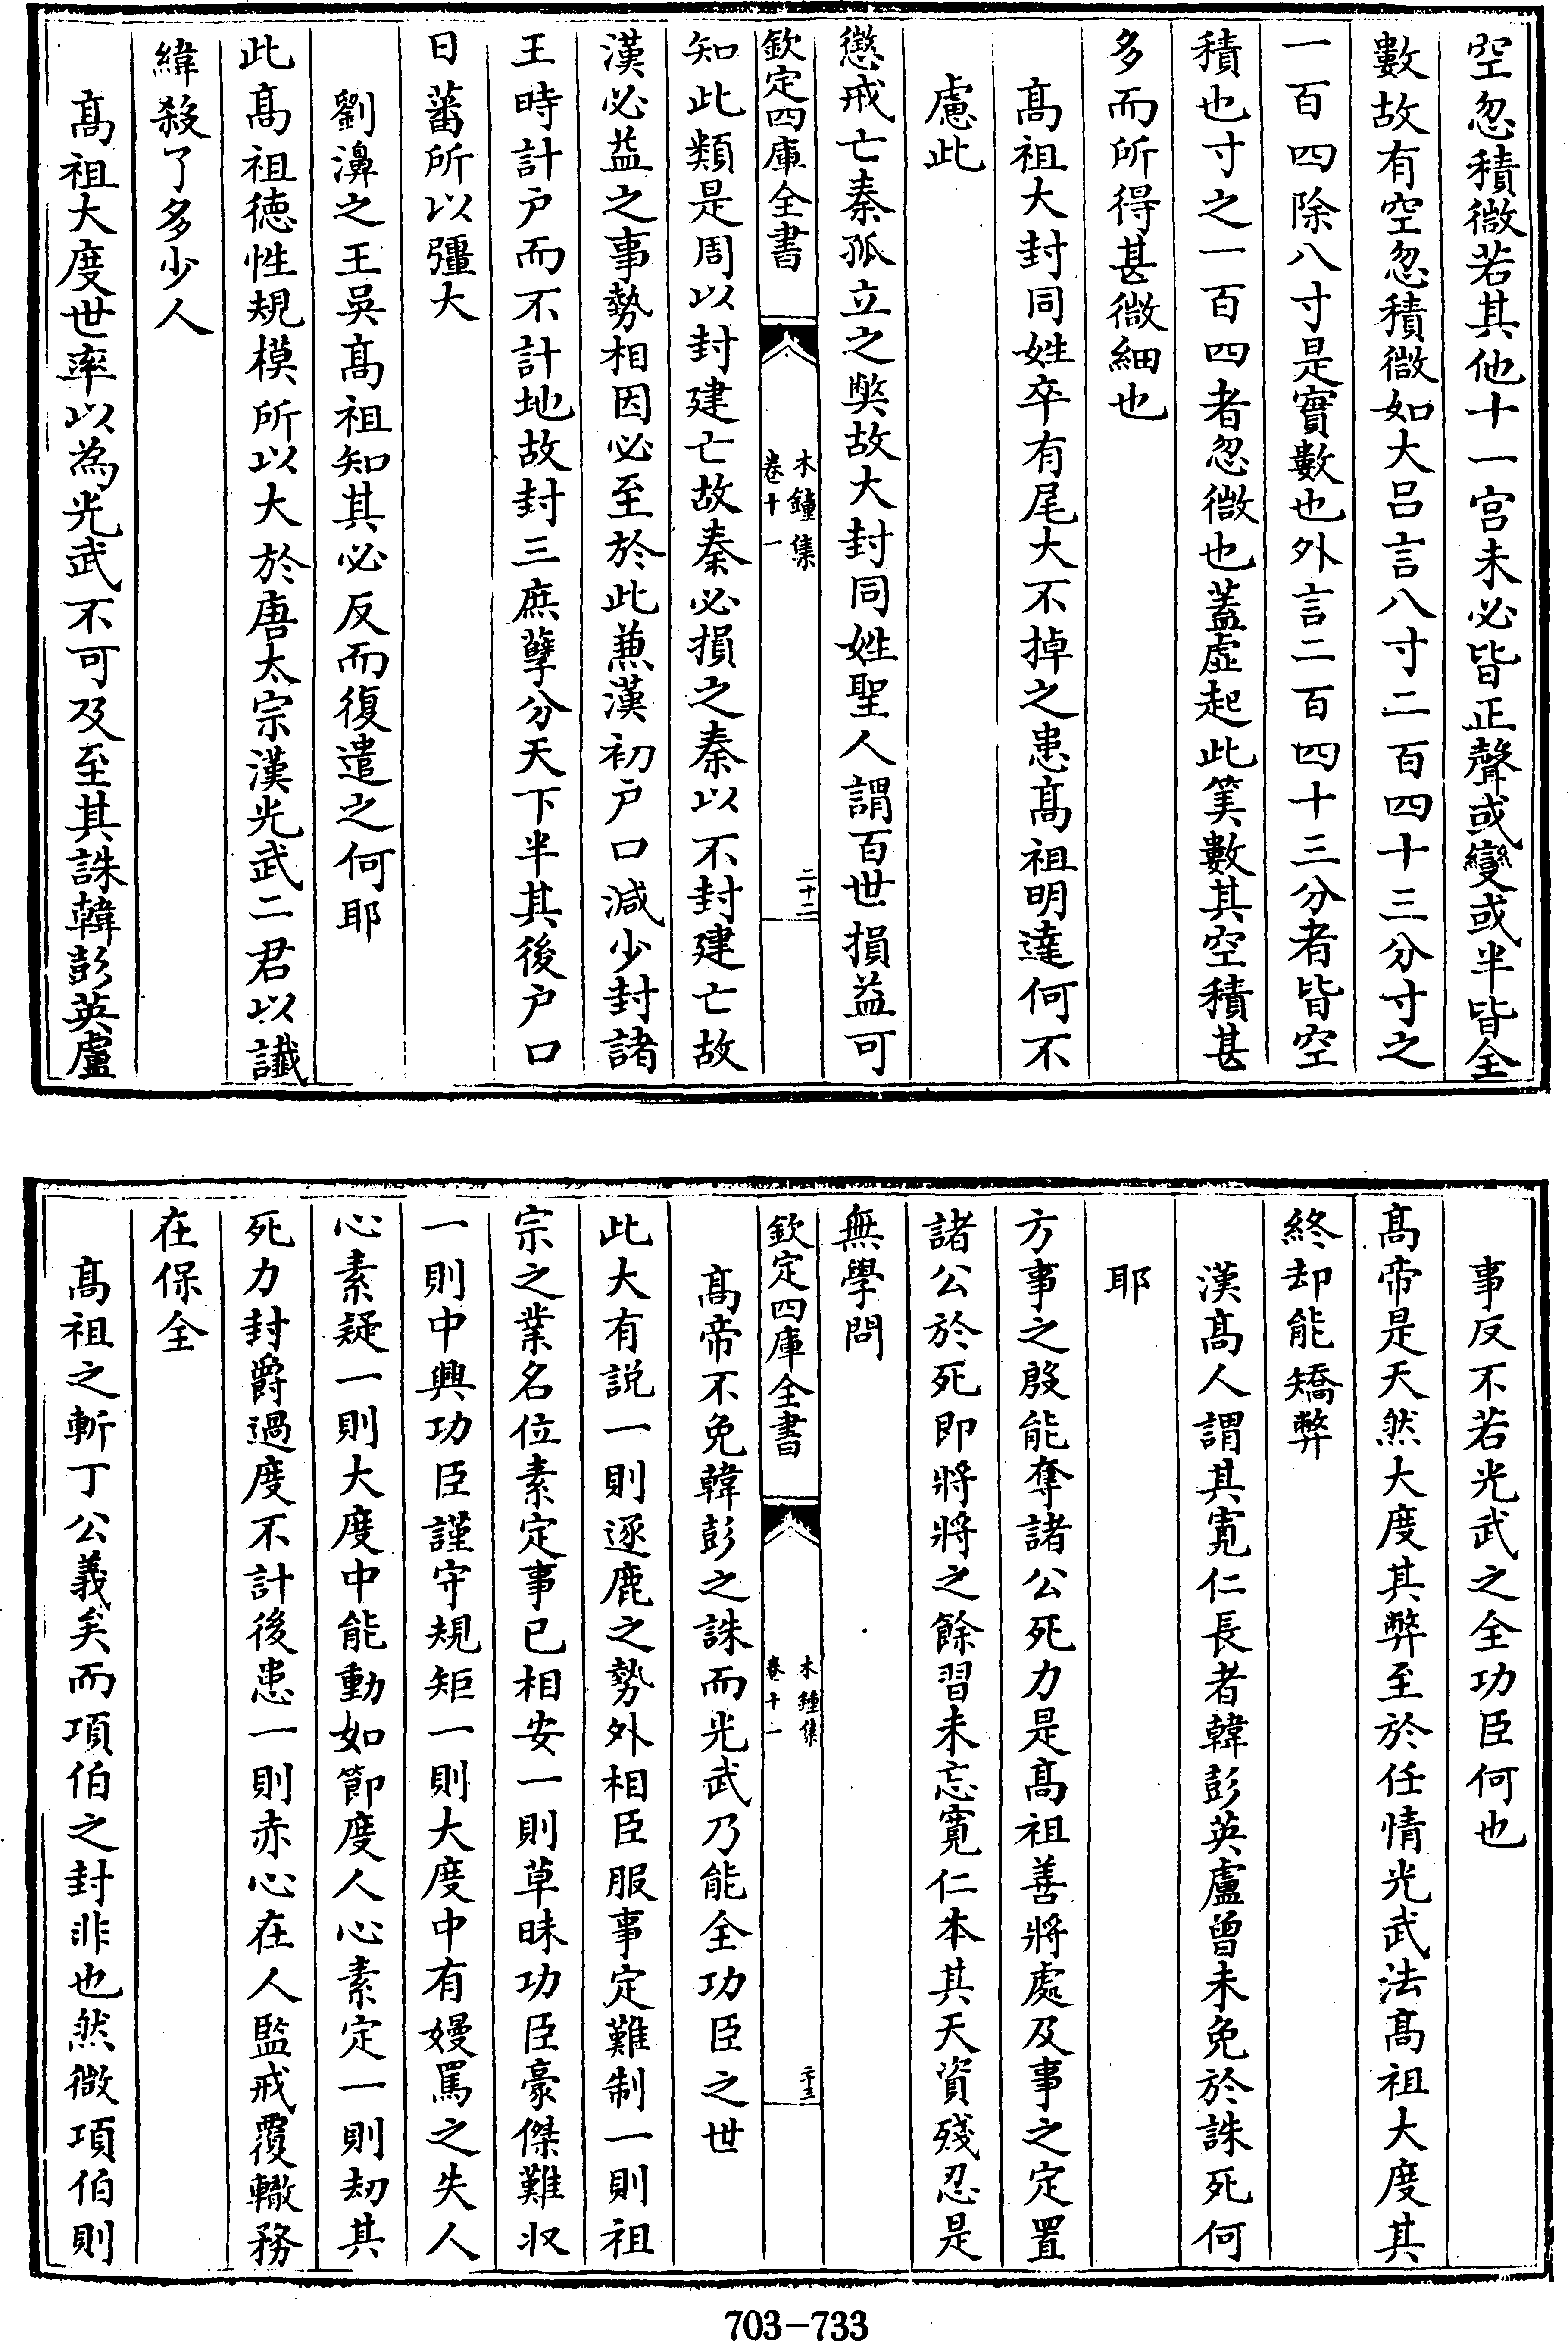 空忽積微若其他十一宫未必皆正聲或變或半皆全
數故有空忽積微如大吕言八寸二百四十三分寸之
一百四除八寸是實數也外言二百四十三分者皆空
積也寸之一百四者忽微也蓋虚起此筭數其空積甚
多而所得甚微細也
髙祖大封同姓卒有尾大不掉之患髙祖明達何不
慮此
懲戒亡秦孤立之獘故大封同姓聖人謂百世損益可
欽定四庫全書
木鐘集
卷十一
二十二
知此類是周以封建亡故秦必損之秦以不封建亡故
漢必益之事勢相因必至於此兼漢初户口減少封諸
王時計户而不計地故封三庶孽分天下半其後户口
日蕃所以彊大
劉濞之王吳髙祖知其必反而復遣之何耶
此髙祖徳性規模所以大於唐太宗漢光武二君以讖
緯殺了多少人
髙祖大度世率以為光武不可及至其誅韓彭英盧
事反不若光武之全功臣何也
髙帝是天然大度其弊至於任情光武法髙祖大度其
終却能矯弊
漢髙人謂其寛仁長者韓彭英盧曾未免於誅死何
耶
方事之殷能奪諸公死力是髙祖善將處及事之定置
諸公於死即將將之餘習未忘寛仁本其天資殘忍是
無學問
欽定四庫全書
木鐘集
卷十一
二十三
髙帝不免韓彭之誅而光武乃能全功臣之世
此大有説一則逐鹿之勢外相臣服事定難制一則祖
宗之業名位素定事已相安一則草昧功臣豪傑難収
一則中興功臣謹守規矩一則大度中有嫚罵之失人
心素疑一則大度中能動如節度人心素定一則刼其
死力封爵過度不計後患一則赤心在人監戒覆轍務
在保全
髙祖之斬丁公義矣而項伯之封非也然微項伯則
703-733